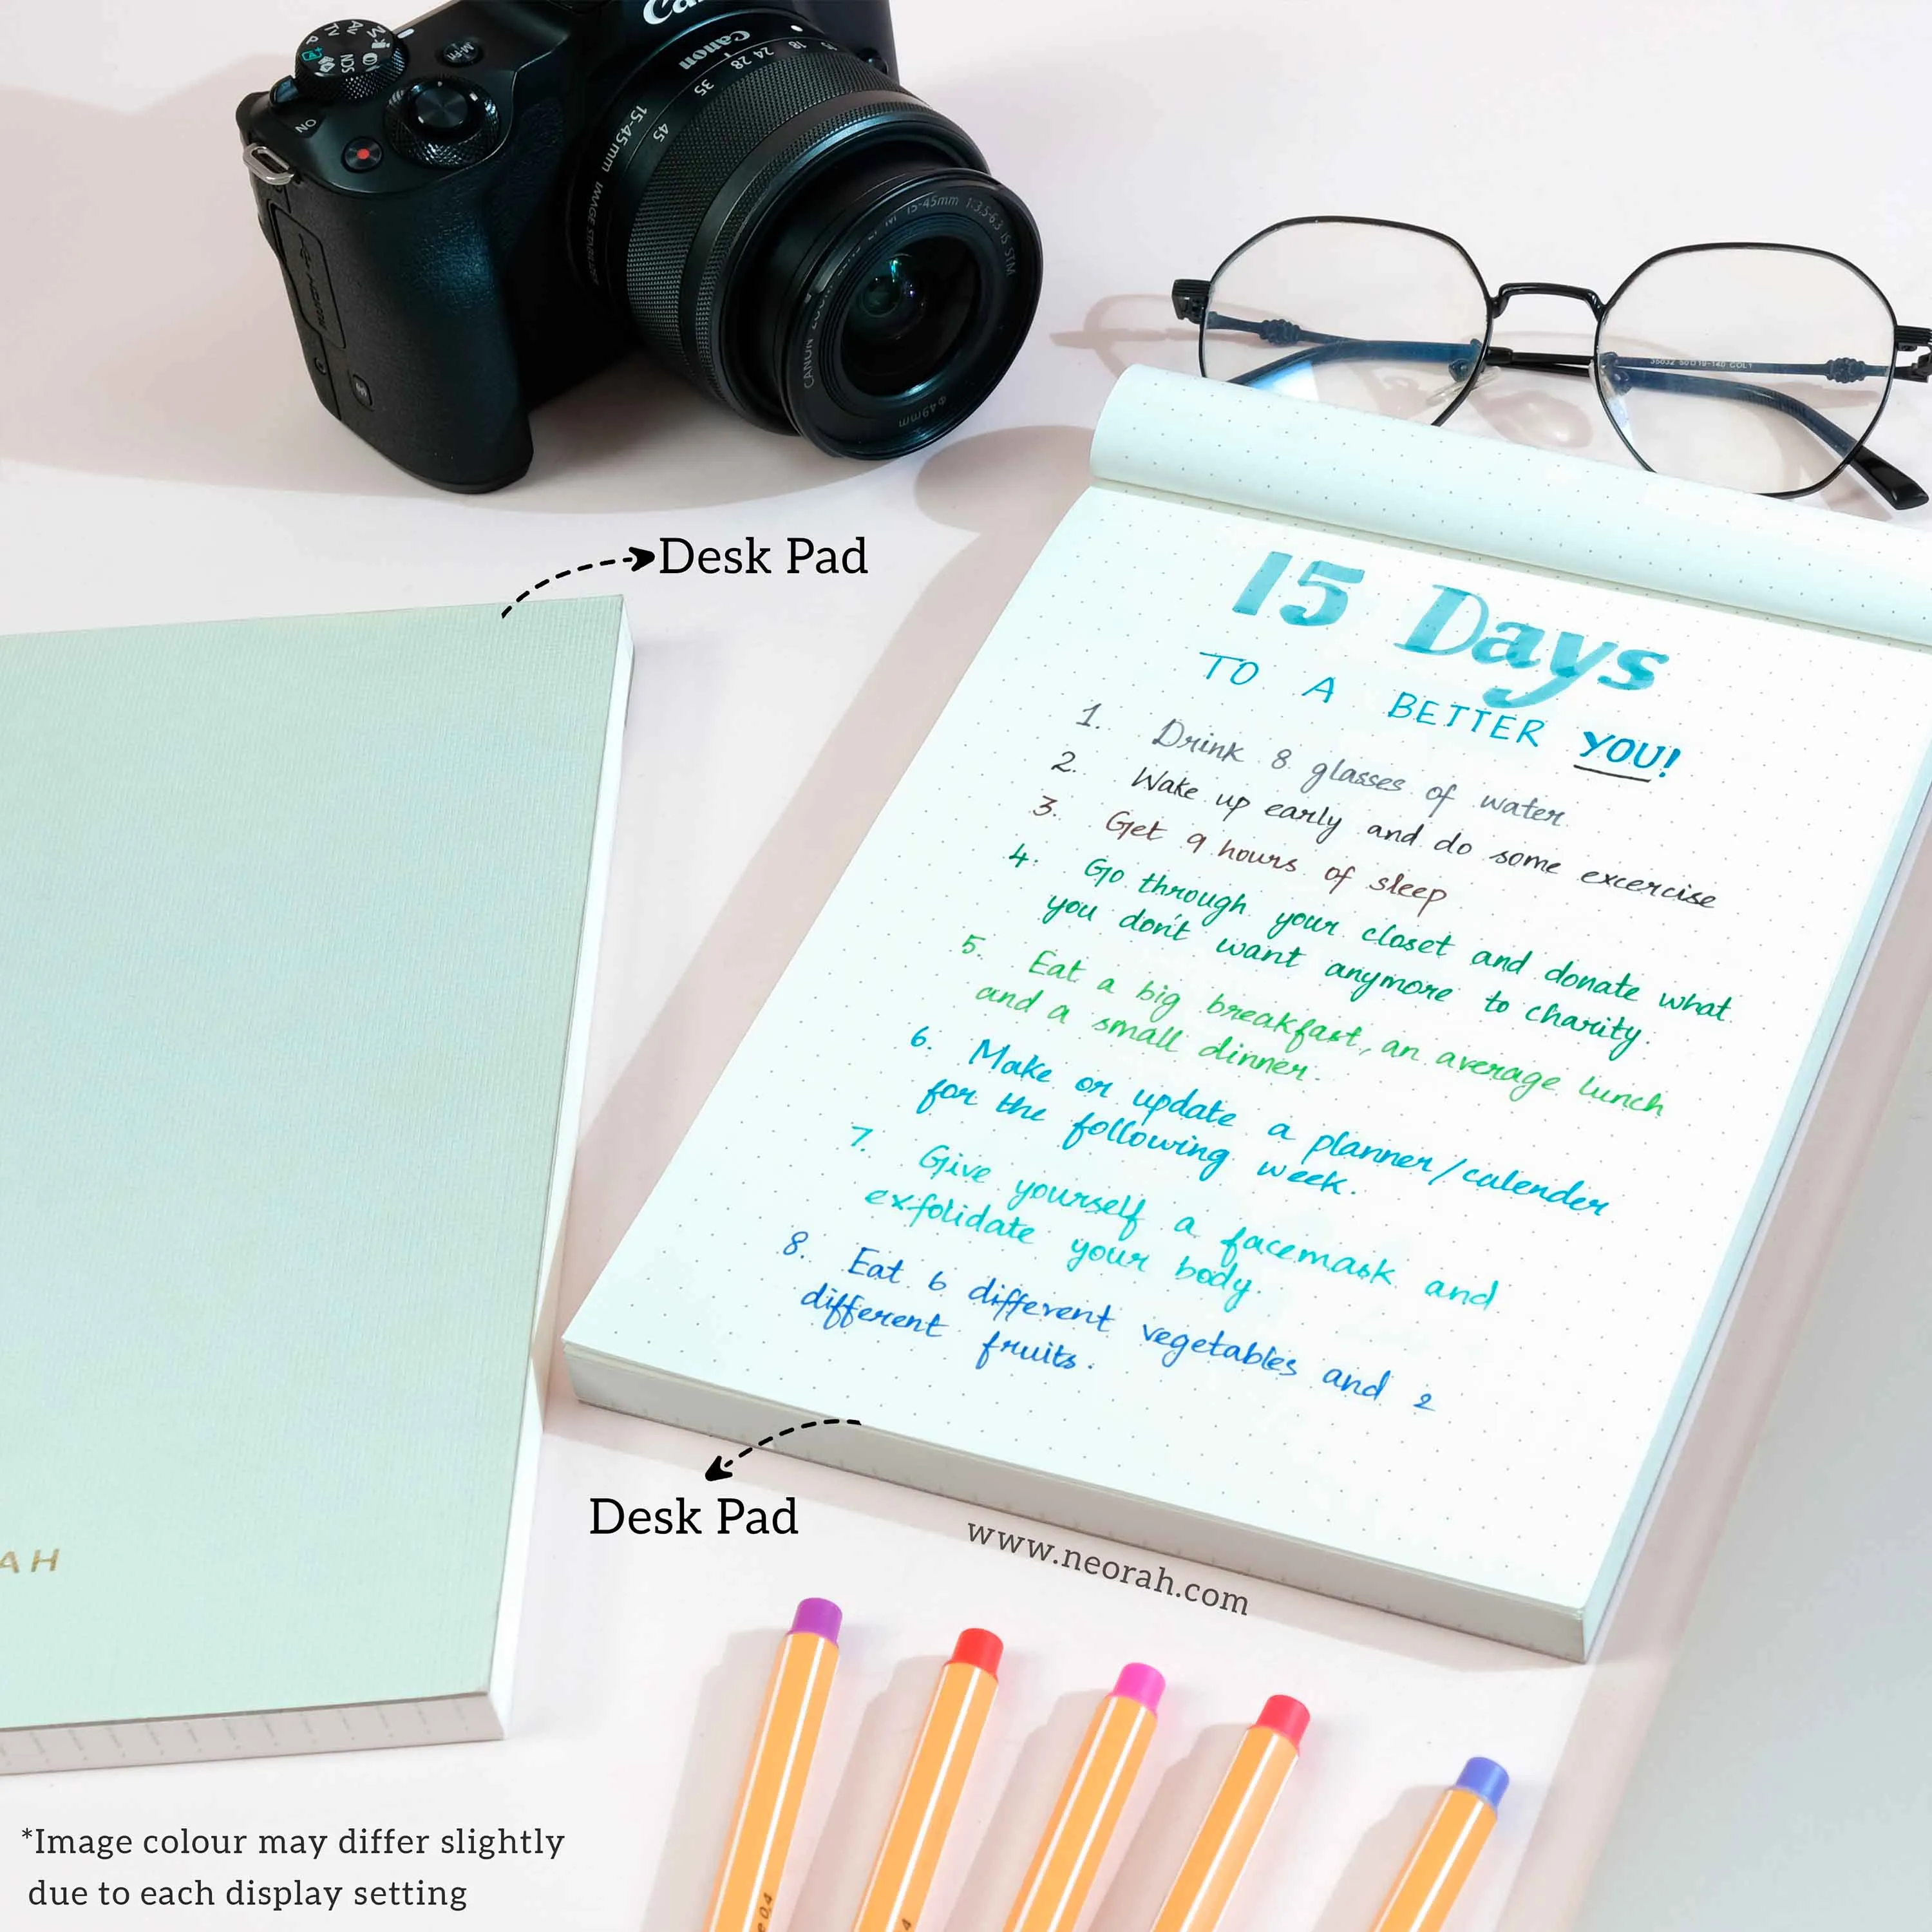 Canon
M-Fn
ON
Canon
15 18 24 28 35 45
15-45mm IMAGE STABILIZER
15-45mm 1:3.5-6.3 IS STM
CANON
Φ49mm
Desk Pad
15 Days
TO A BETTER YOU!
1. Drink 8 glasses of water
2. Wake up early and do some excercise
3. Get 9 hours of sleep
4. Go through your closet and donate what
you don't want anymore to charity.
5. Eat a big breakfast, an average lunch
and a small dinner.
6. Make or update a planner/calender
for the following week.
7. Give yourself a facemask and
exfolidate your body.
8. Eat 6 different vegetables and 2
different fruits.
Desk Pad
www.neorah.com
AH
0.4
*Image colour may differ slightly
due to each display setting